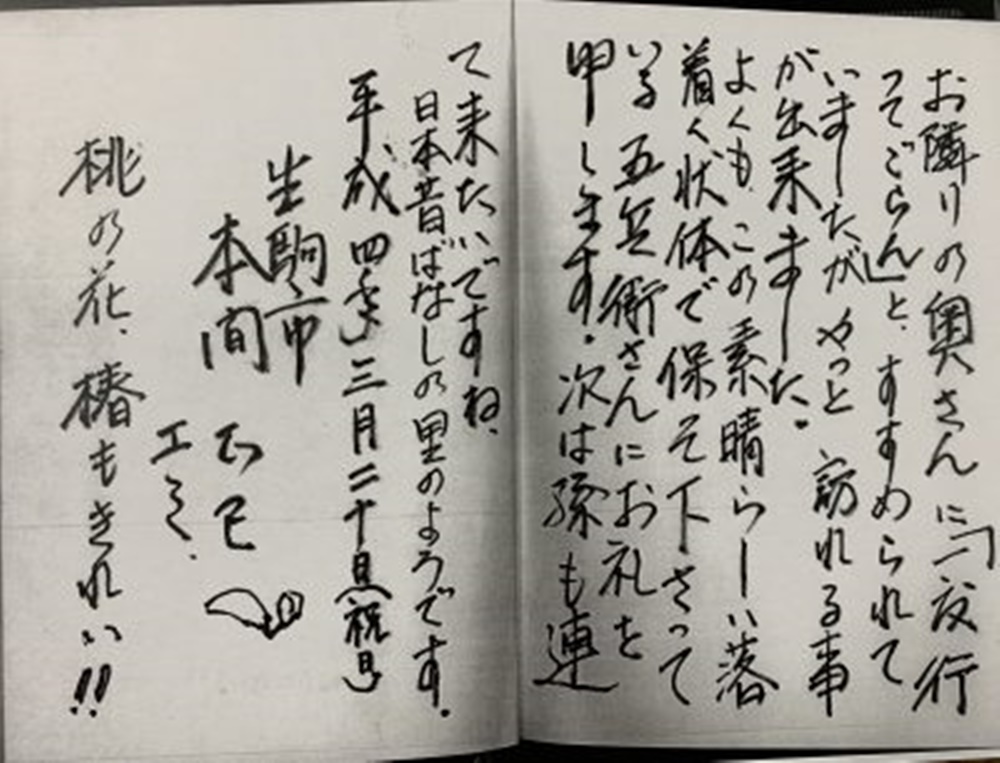 お隣りの奥さんに「一度行
ってごらん」と、すすめられて
いましたがやっと訪れる事
が出来ました。
よくも、この素晴らしい落
着く状体で保そ下さって
いる五兵衛さんにお礼を
申します。次は孫も連
て来たいですね、
日本昔ばなしの里のようです。
平成四年三月二十日(祝日)
生駒市
本間
エミ、
桃の花、椿もきれい!!